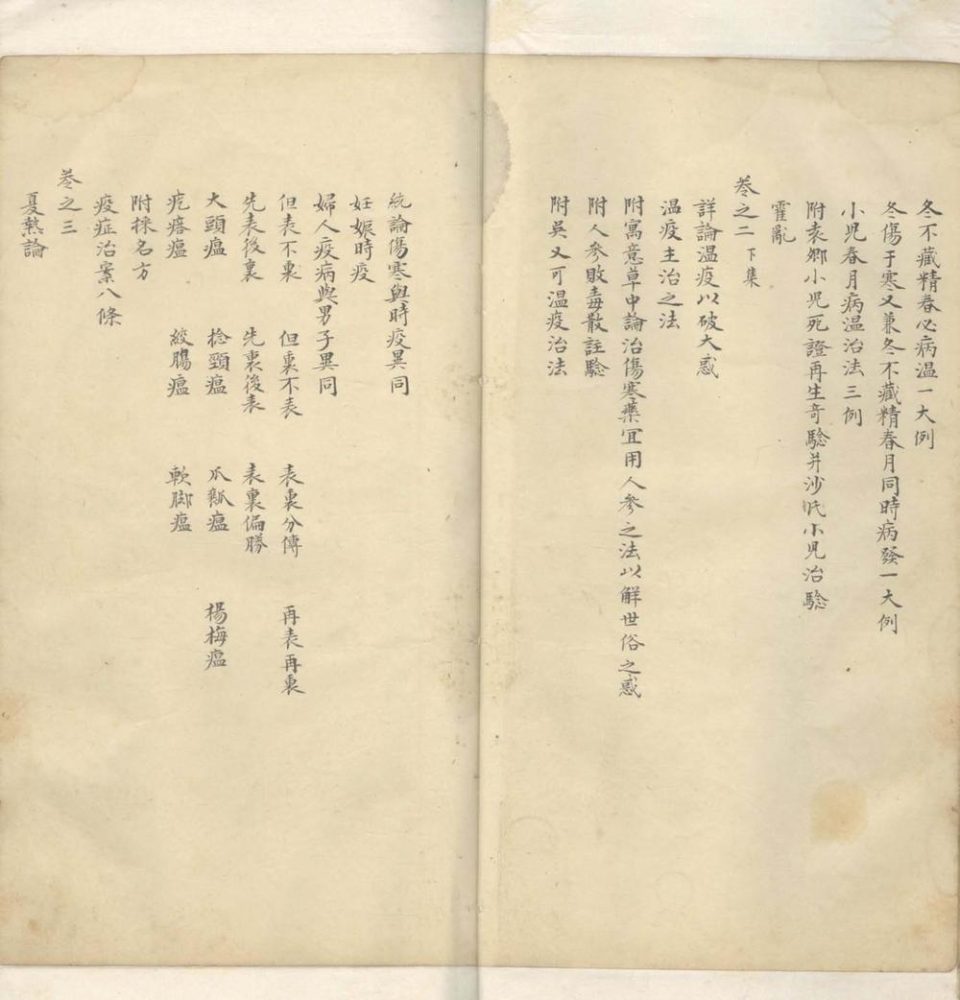 冬不藏精春必病温一大例
冬傷于寒又兼冬不藏精春月同時病發一大例
小児春月病温治法三例
附袁鄉小児死證再生奇騐并沙氏小児治騐
霍亂
卷之二 下集
詳論温疫以破大惑
温疫主治之法
附寓意草中論治傷寒藥宜用人参之法以解世俗之惑
附人参敗毒散註騐
附吳又可温疫治法
統論傷寒與時疫異同
妊娠時疫
婦人疫病與男子異同
但表不裏 但裏不表 表裏分傳 再表再裏
先表後裏 先裏後表 表裏偏勝
大頭瘟 捻頸瘟 瓜瓤瘟 楊梅瘟
疙瘩瘟 絞腸瘟 軟脚瘟
附採名方
疫症治案八條
卷之三
夏熱論